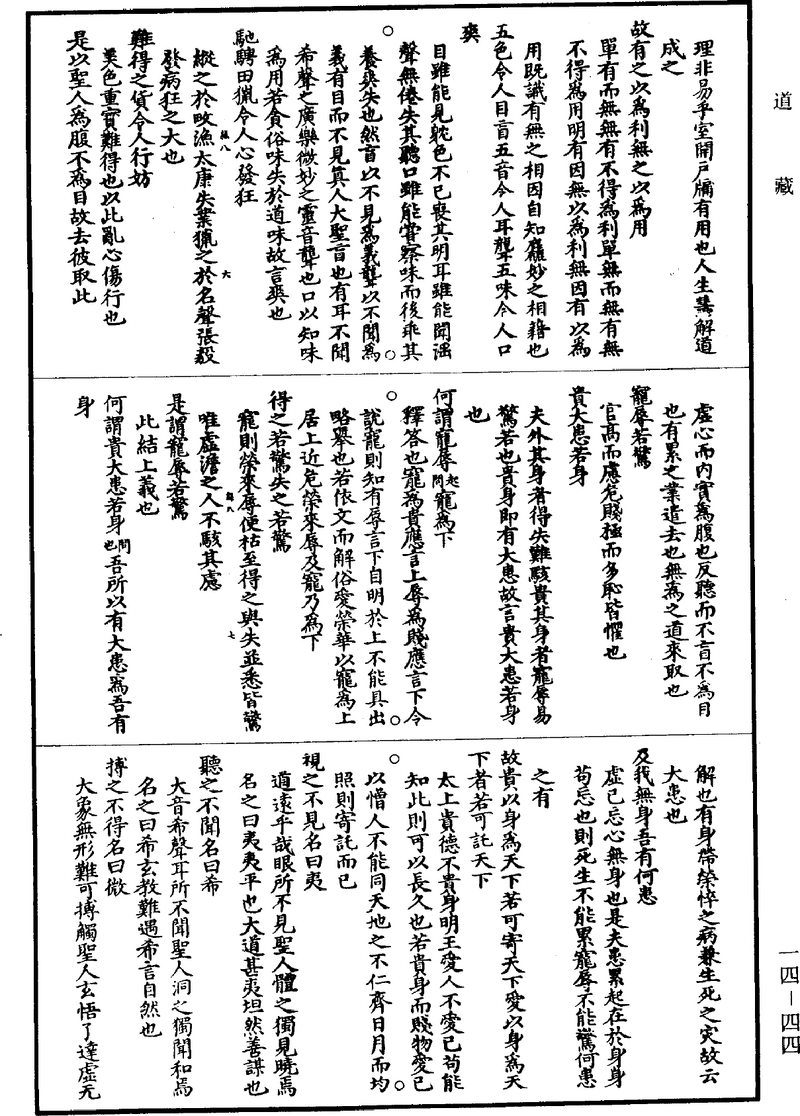 道藏
理非易乎室開戶牖有用也人生慧解道
成之
故有之以爲利無之以爲用
單有而無無有不得爲利單無而無有無
不得爲用明有因無以爲利無因有以爲
用既識有無之相因自知麤妙之相藉也
五色令人目盲五音令人耳聾五味令人口
爽
目雖能見躭色不已喪其明耳雖能聞滛
聲無倦失其聽口雖能嘗察味而後乖其
養爽失也然盲以不見爲義聾以不聞爲
義有目而不見眞人大聖盲也有耳不聞
希聲之廣樂微妙之靈音聾也口以知味
爲用若食俗味失於道味故言爽也
馳騁田獵令人心發狂
縱之於畋漁太康失業獵之於名聲張毅
發病狂之大也
難得之貨令人行妨
美色重寶難得也以此亂心傷行也
是以聖人爲腹不爲目故去彼取此
虛心而內實爲腹也反聽而不盲不爲目
也有累之業遣去也無爲之道來取也
寵辱若驚
官高而慮危賤極而多恥皆懼也
貴大患若身
夫外其身者得失難駭貴其身者寵辱易
驚若也貴身即有大患故言貴大患若身
也
何謂寵辱起問寵爲下
釋答也寵爲貴應言上辱爲賤應言下今
說寵則知有辱言下自明於上不能具出
略舉也若依文而解俗愛榮華以寵爲上
居上近危榮來辱及寵乃爲下
得之若驚失之若驚
寵則榮來辱便枯至得之與失並悉皆驚
唯虛澹之人不駭其處
是謂寵辱若驚
此結上義也
何謂貴大患若身問也吾所以有大患爲吾有
身
解也有身帶榮悴之病兼生死之灾故云
大患也
及我無身吾有何患
虛己忘心無身也是夫患累起在於身身
苟忘也則死生不能累寵辱不能驚何患
之有
故貴以身爲天下若可寄天下愛以身爲天
下者若可託天下
太上貴德不貴身明王愛人不愛己苟能
知此則可以長久也若貴身而賤物愛己
以憎人不能同天地之不仁齊日月而均
照則寄託而已
視之不見名曰夷
道遠乎哉眼所不見聖人體之獨見曉焉
名之曰夷夷平也大道甚夷坦然善謀也
聽之不聞名曰希
大音希聲耳所不聞聖人洞之獨聞和焉
名之曰希玄教難遇希言自然也
摶之不得名曰微
大象無形難可摶觸聖人玄悟了達虛无
一四—四四